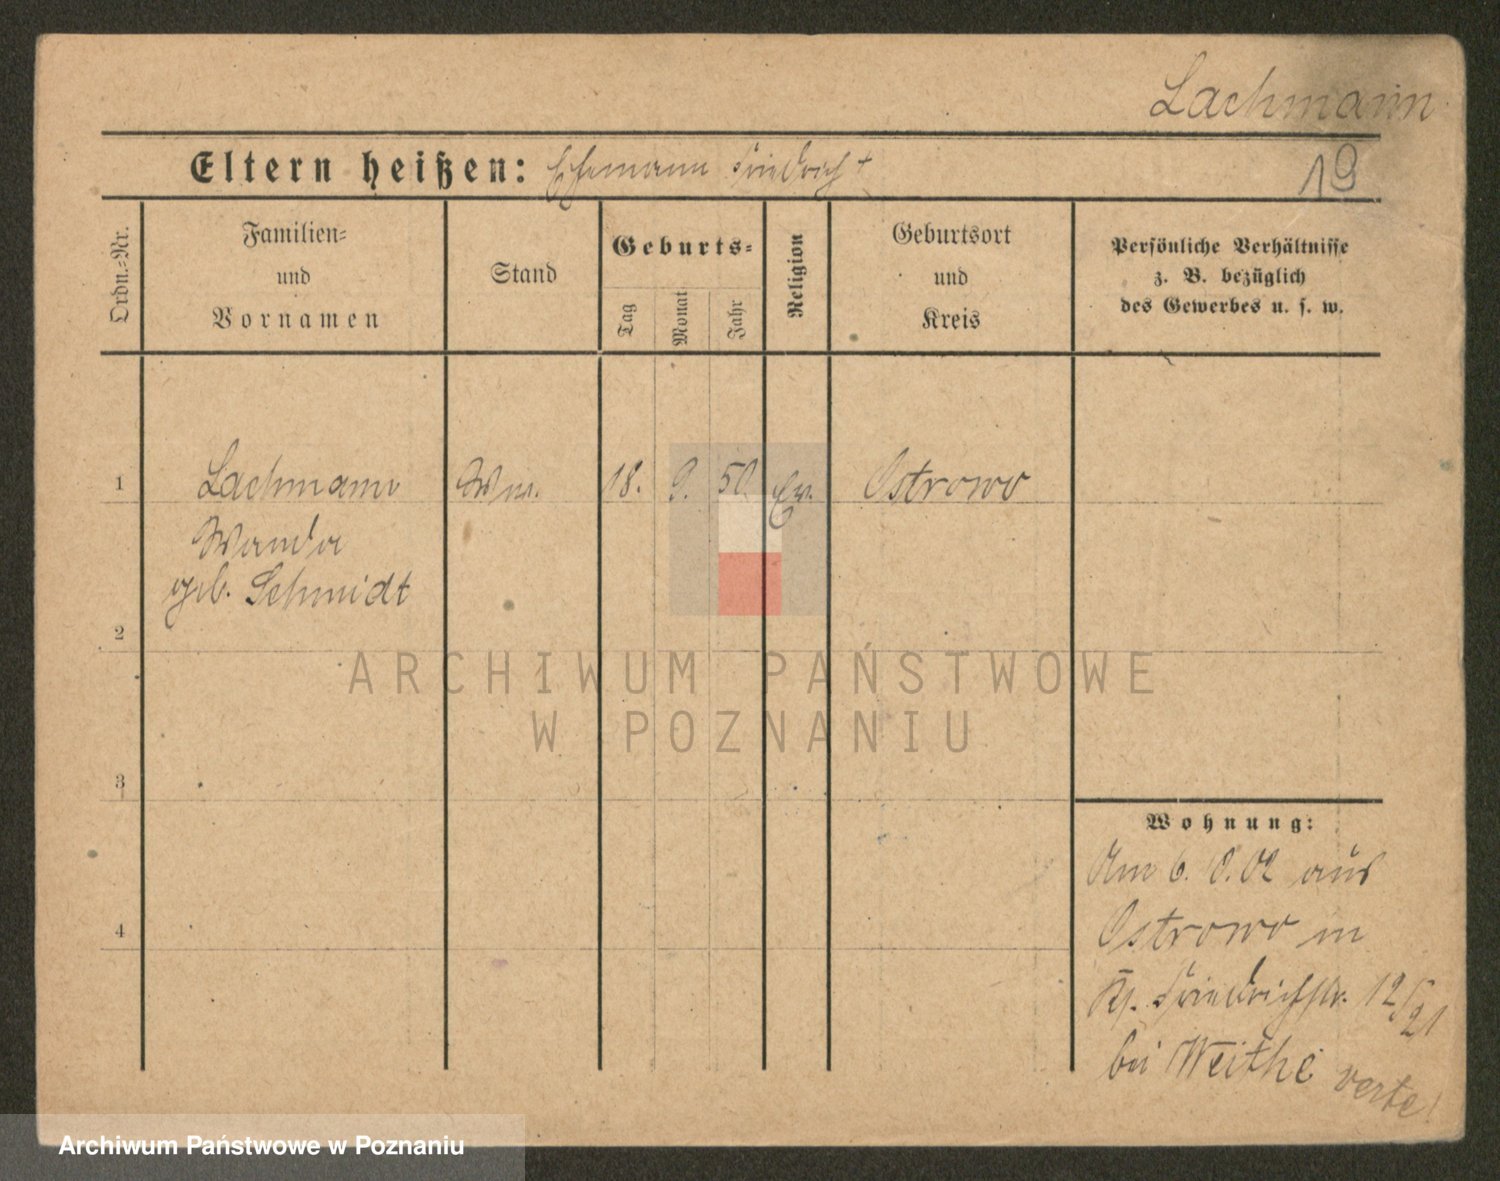 Lachmann
19
Eltern heißen: Ehemann Friedrich †
Ordn.-Nr.
Familien-
und
Vornamen
Stand
Geburts-
Tag
Monat
Jahr
Religion
Geburtsort
und
Kreis
Persönliche Verhältnisse
z. B. bezüglich
des Gewerbes u. s. w.
1 Lachmann Ww. 18. 9. 50. Ev. Ostrowo
Wanda
geb. Schmidt
2
3
4
Wohnung:
Am 6. 8. 02 aus
Ostrowo in
Friedrichstr. 12/21
bei Weithe
verte!
ARCHIWUM PAŃSTWOWE
W POZNANIU
Archiwum Państwowe w Poznaniu